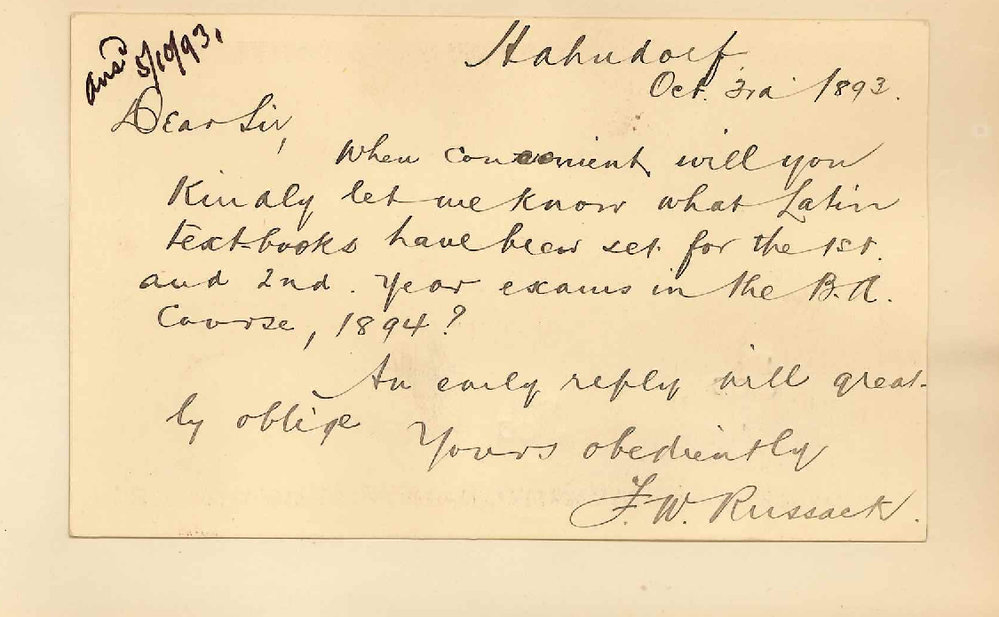 ansd 5/10/93.
Hahndorf.
Oct. 3rd 1893.
Dear Sir,
When convenient, will you
Kindly let me know what Latin
text-books have been set for the 1st.
and 2nd. Year exams in the B.A.
Course, 1894?
An early reply will great-
ly oblige
Yours obediently
F. W. Russack.